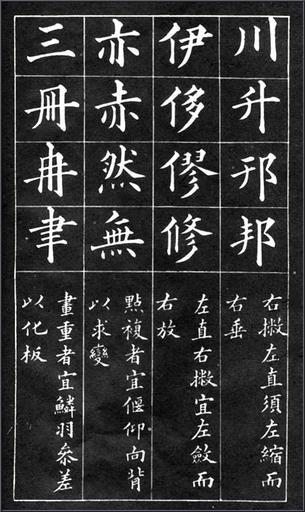 川升邦
右撇左直須左縮而
右垂
伊侈僇修
左直右撇宜左斂而
右放
亦赤然無
點複者宜偃仰向背
以求變
三冊冉聿
畫重者宜鱗羽參差
以化板